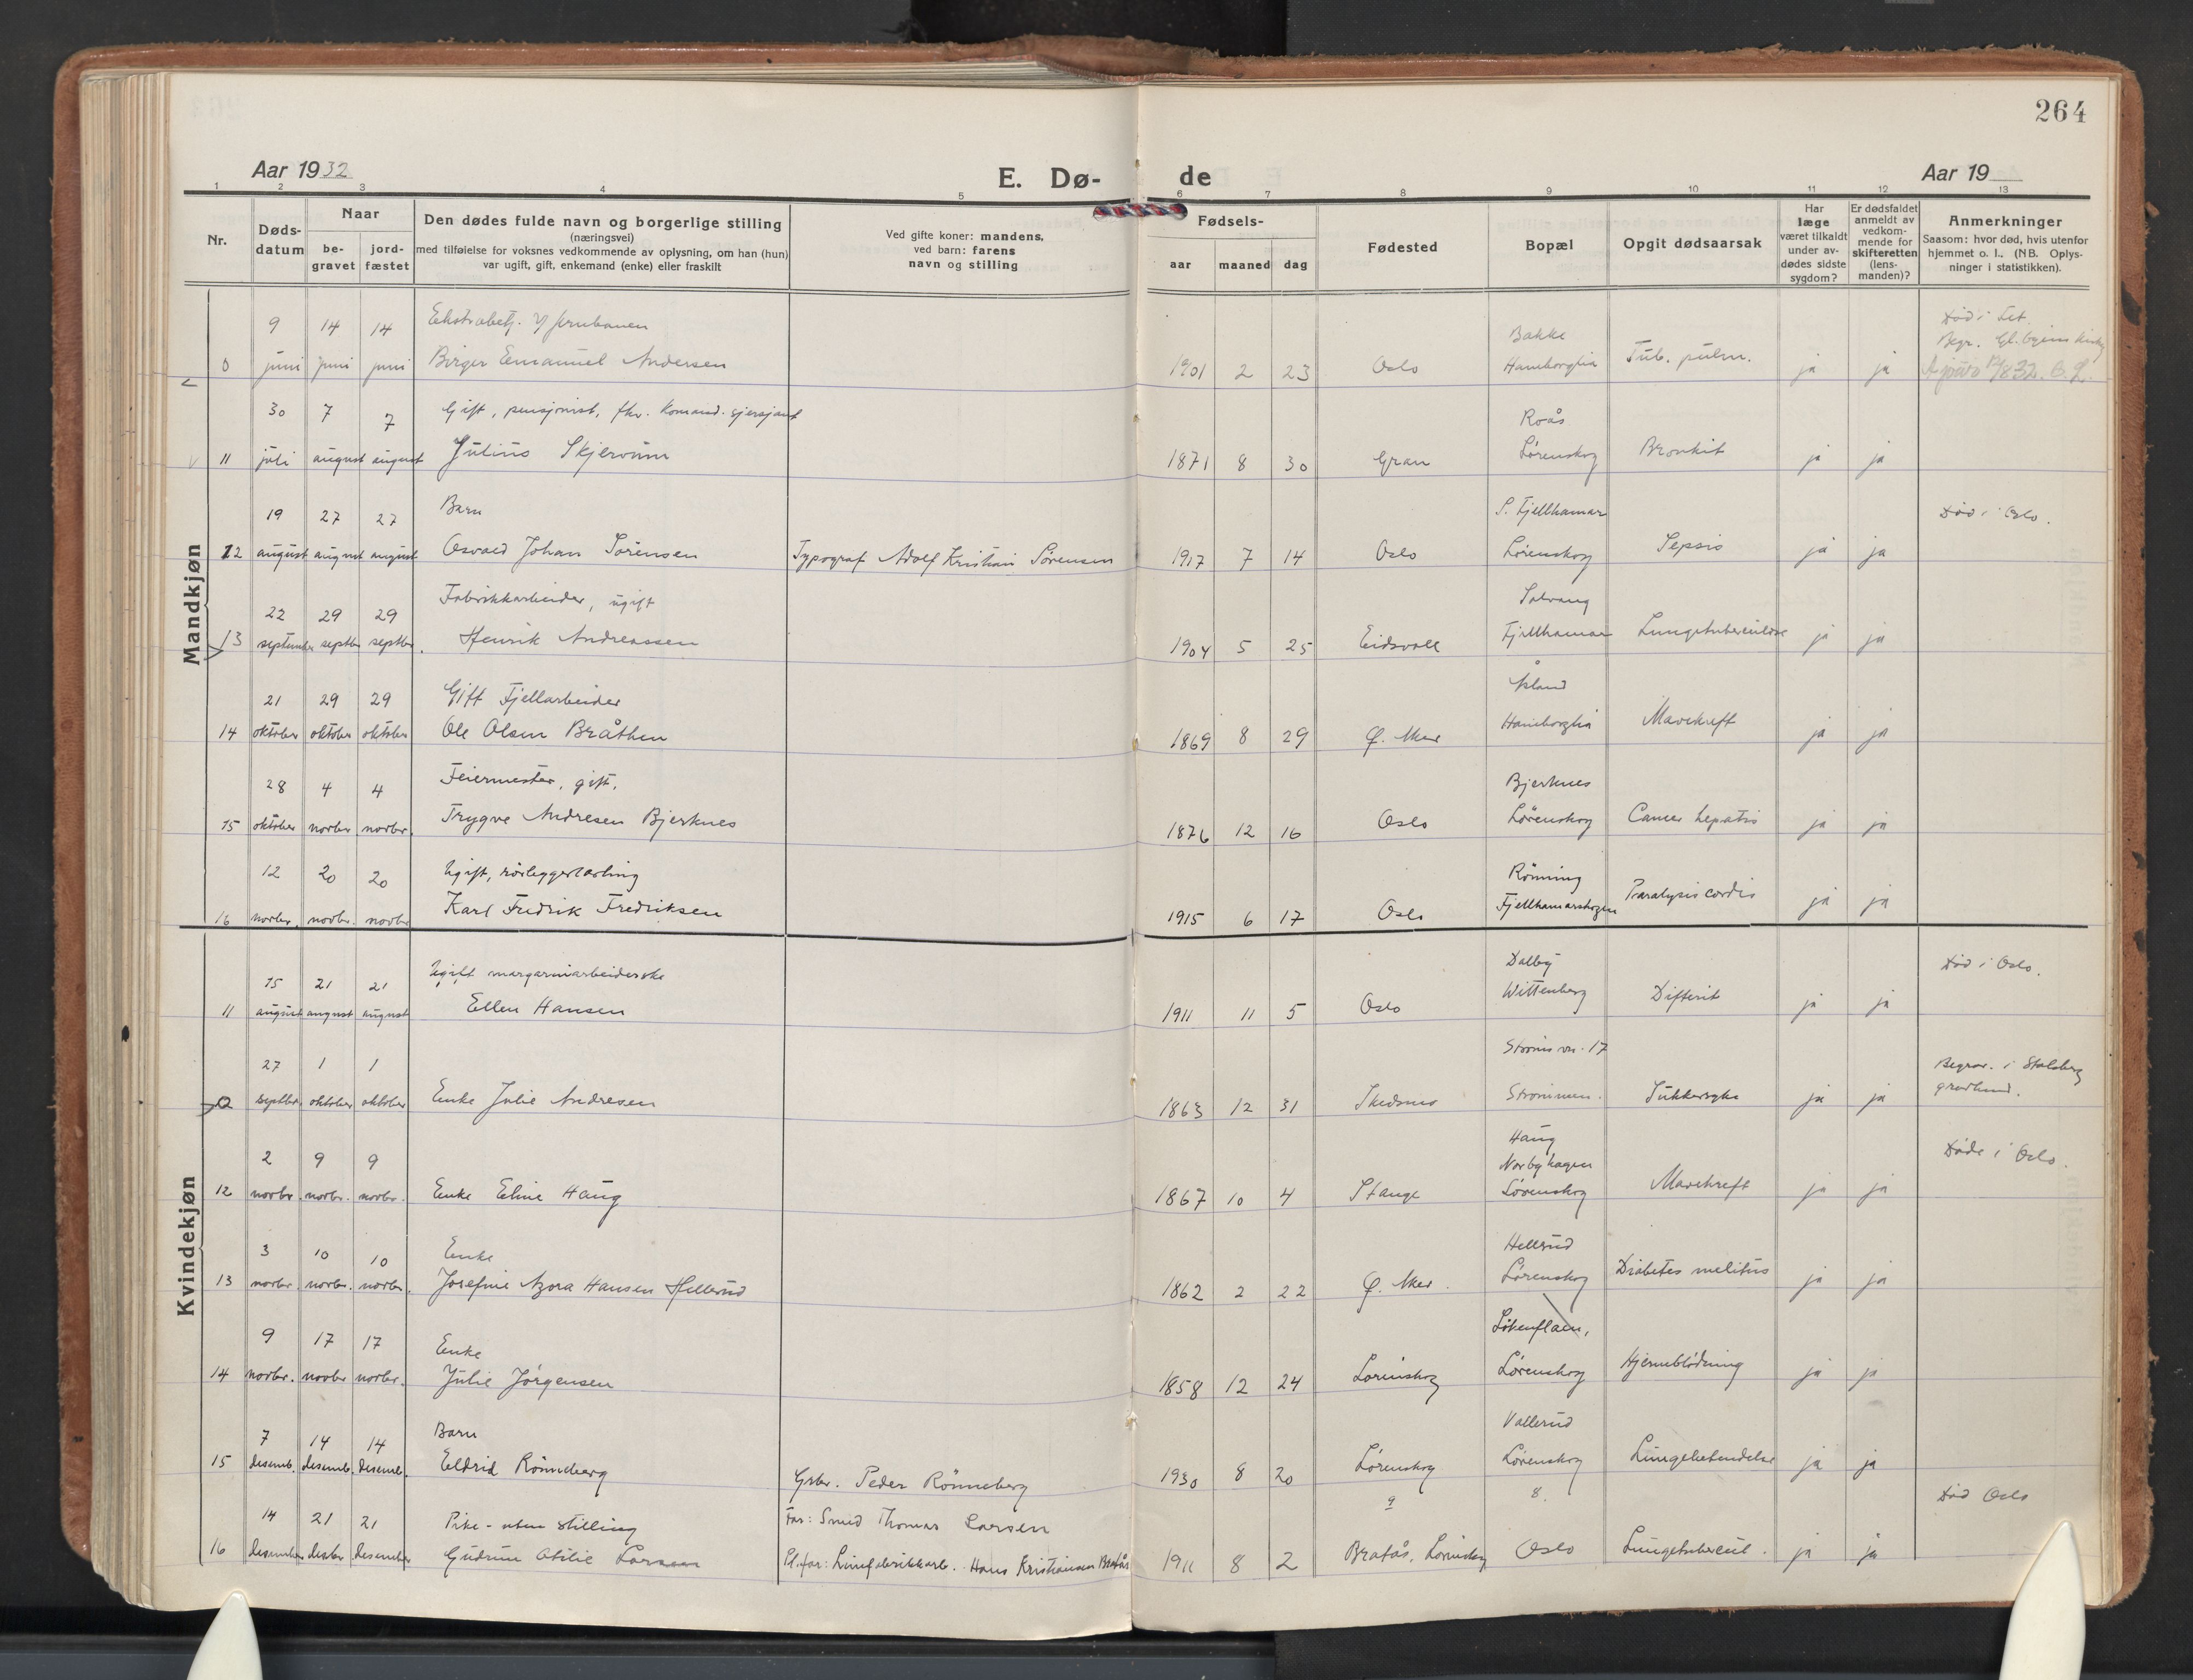 264
Aar 1932
E. Dø-
de
Aar 19
1 2 3 4 5 6 7 8 9 10 11 12 13
Nr.
Døds-
datum
Naar
be-
gravet
jord-
fæstet
Den dødes fulde navn og borgerlige stilling
(næringsvei)
med tilføielse for voksnes vedkommende av oplysning, om han (hun)
var ugift, gift, enkemand (enke) eller fraskilt
Ved gifte koner: mandens,
ved barn: farens
navn og stilling
Fødsels-
aar maaned dag
Fødested
Bopæl
Opgit dødsaarsak
Har
læge
været tilkaldt
under av-
dødes sidste
sygdom?
Er dødsfaldet
anmeldt av
vedkom-
mende for
skifteretten
(lens-
manden)?
Anmerkninger
Saasom: hvor død, hvis utenfor
hjemmet o. l. (NB. Oplys-
ninger i statistikken).
Mandkjøn
9 14 14 Ekstrabetj. v/ Jernbanen Bakke
0 juni juni juni Birger Emanuel Andersen 1901 2 23 Oslo Haneborglia Tub. pulm. ja ja
30 7 7 Gift, pensjonist, fhv. komand. sjersjant Roås
11 juli august august Julius Skjervum 1871 8 30 Gran Lørenskog Bronkit ja ja
19 27 27 Barn S. Fjellhamar Død i Oslo.
12 august august august Osvald Johan Sørensen Typograf Adolf Kristian Sørensen 1917 7 14 Oslo Lørenskog Sepsis ja ja
22 29 29 Fabrikkarbeider, ugift Solvang
13 september septbr septbr. Henrik Andreassen 1904 5 25 Eidsvoll Fjellhamar Lungetuberculose ja ja
21 29 29 Gift Fjellarbeider Åsland
14 oktober oktober oktober Ole Olsen Bråthen 1869 8 29 Ø. Aker Haneborglia Mavekreft ja ja
28 4 4 Feiermester, gift. Bjerknes
15 oktober novbr novbr. Trygve Andresen Bjerknes 1876 12 16 Oslo Lørenskog Cancer hepatis ja ja
12 20 20 Ugift, rørleggerlærling Rønning
16 novbr. novbr. novbr Karl Fredrik Fredriksen 1915 6 17 Oslo Fjellhamarskogen Paralysis cordis ja ja
Kvindekjøn
15 21 21 Ugift margarinarbeiderske Dalby Død i Oslo.
11 august august august Ellen Hansen 1911 11 5 Oslo Wittenberg Difterit ja ja
27 1 1 Strøms vn. 17 Begrav. i Stalsberg
0 septbr. oktober oktober Enke Julie Andresen 1863 12 31 Skedsmo Strømmen. Sukkersyke ja ja gravlund.
2 9 9 Haug
Norbyhagen Døde i Oslo.
12 novbr. novbr. novbr. Enke Eline Haug 1867 10 4 Stange Lørenskog Mavekreft ja ja
3 10 10 Enke Hellerud
13 novbr. novbr. novbr. Josefine Azora Hansen Hellerud 1862 2 22 Ø. Aker. Lørenskog Diabetes melitus ja ja
9 17 17 Enke Løkenflaen,
14 novbr. novbr novbr. Julie Jørgensen 1858 12 24 Lørenskog Lørenskog Hjerneblødning ja ja
7 14 14 Barn Vallerud
15 desemb. desemb. desemb. Eldrid Rønneberg Grbr. Peder Rønneberg 1930 8 20 Lørenskog Lørenskog Lungebetendelse ja ja
9 8.
14 21 21 Pike - uten stilling Far: Smed Thomas Larsen Død Oslo
16 desember desbr desember Gudrun Otilie Larsen Pl.far: Limfabrikkarb. Hans Kristiansen Bråtås 1911 8 2 Bratås, Lørenskog Oslo Lungetubercul. ja ja